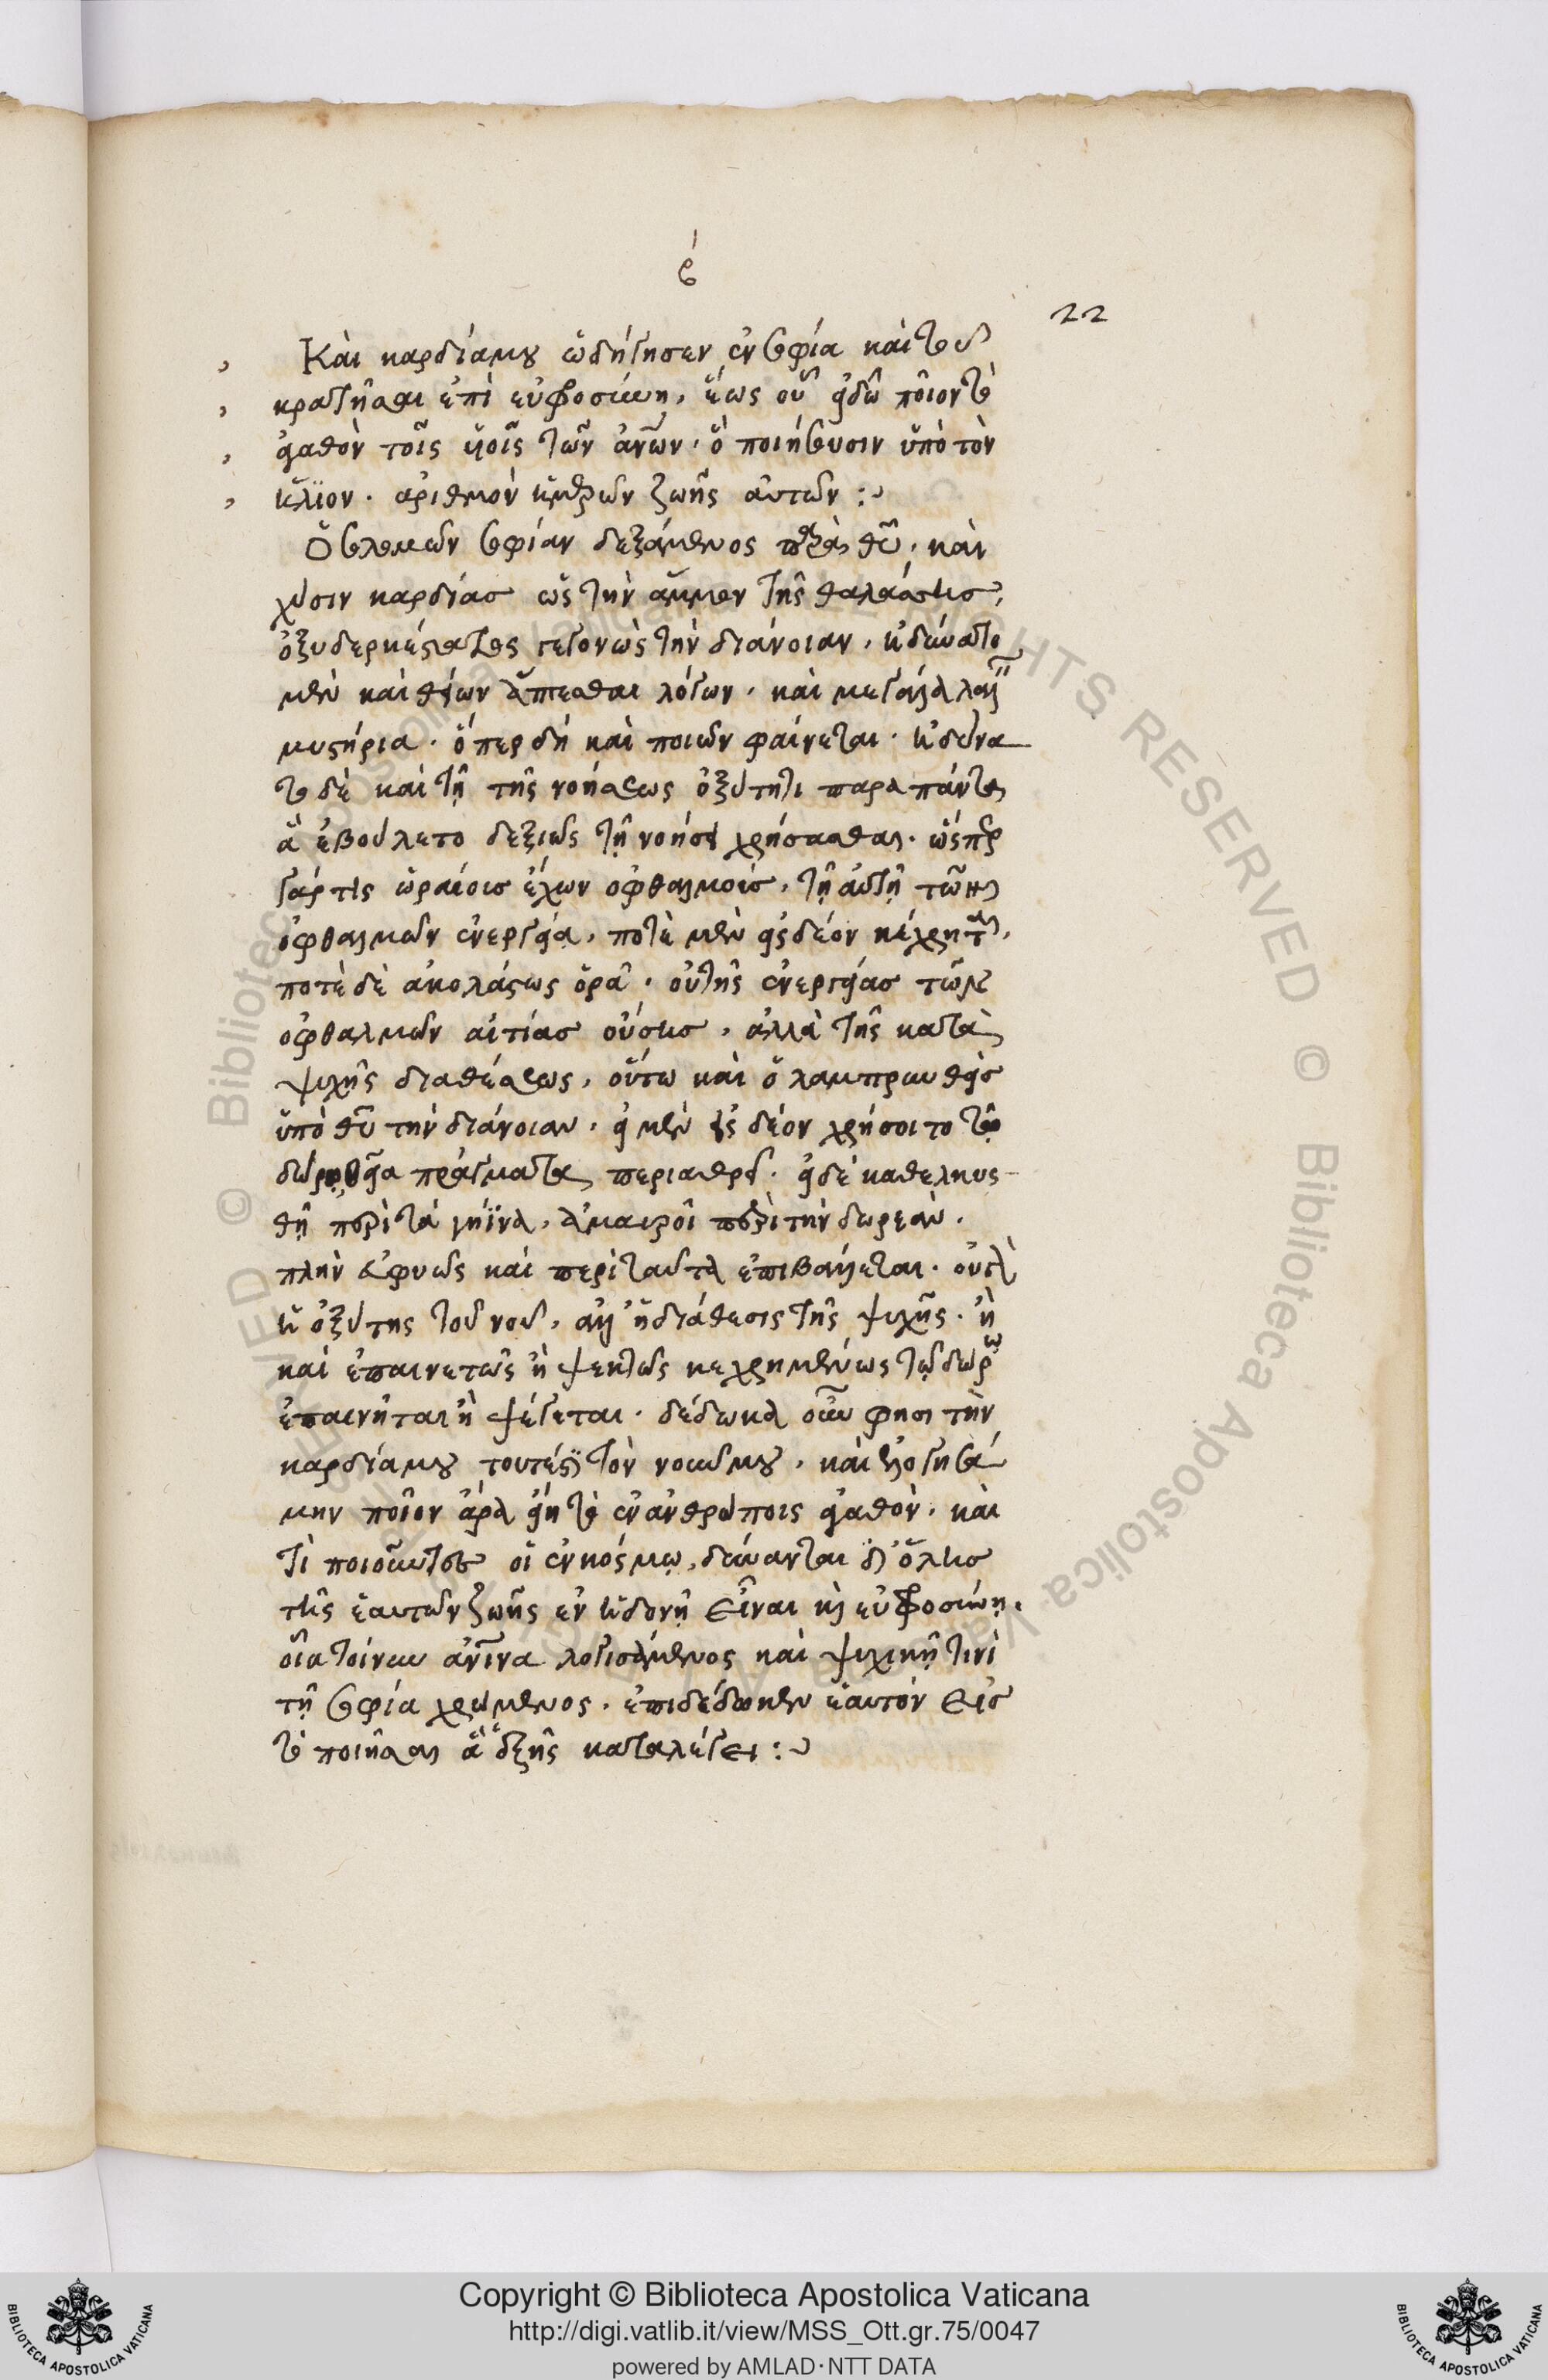 ϛ́
22
Καὶ καρδία μου ὡδήγησεν ἐν σοφία καὶ τοῦ
κρατῆσαι ἐπὶ εὐφροσύνη, ἕως οὗ εἰδῶ ποῖον τὸ
ἀγαθὸν τοῖς υἱοῖς τῶν ἀνων· ὃ ποιήσουσιν ὑπὸ τὸν
ἥλϊον. ἀριθμὸν ἡμερῶν ζωῆς αὐτῶν :~
Ὁ σολομῶν σοφίαν δεξάμενος παρὰ θῦ, καὶ
χύσιν καρδίας ὡς τὴν ἄμμον τῆς θαλάσσης,
ὀξυδερκέστατος γεγονὼς τὴν διάνοιαν, ἠδύνατο
μὲν καὶ θείων ἅπτεσθαι λόγων, καὶ μεγάλα λαλεῖν
μυστήρια. ὅπερ δὴ καὶ ποιῶν φαίνεται. ἠδύνα
το δὲ καὶ τῇ τῆς νοήσεως ὀξύτητι παρα πάντα
ἃ ἐβούλετο δεξιῶς τῇ νοήσει χρήσασθαι. ὥσπερ
γάρ τις ὡραίοις ἔχων ὀφθαλμοίς, τῇ αὐτῇ τῶν
ὀφθαλμῶν ἐνεργεία, ποτὲ μὲν εἰς δέον κέχρηται,
ποτὲ δὲ ἀκολάστως ὁρᾶ. οὐ τῆς ἐνεργείας τῶν
ὀφθαλμῶν αἰτίας οὔσης, ἀλλὰ τῆς κατὰ
ψυχῆς διαθέσεως, οὕτω καὶ ὁ λαμπρυνθεὶς
ὑπὸ θῦ τὴν διάνοιαν, εἰ μὲν εἰς δέον χρήσοιτο τῷ
δώρω θεῖα πράγματα περιαθρεῖ. εἰ δὲ καθελκυσ-
θῇ περὶ τὰ γήϊνα, ἀμαυροῖ περὶ τὴν δωρεάν.
πλὴν εὐφυῶς καὶ περὶ ταῦτα ἐπιβάλλεται. οὐχ
ἡ ὀξύτης τοῦ νοῦ, ἀλλ' ἡ διάθεσις τῆς ψυχῆς. ἢ
καὶ ἐπαινετῶς ἢ ψεκτῶς κεχρημένως τῷ δώρω
ἐπαινῆται ἢ ψέγεται. δέδωκα οὖν φησι τὴν
καρδία μου τουτέστι τὸν νοῦν μου, καὶ ἐλογησά
μην ποῖον ἄρα εἴη τὸ ἐν ἀνθρώποις ἀγαθὸν, καὶ
τὶ ποιοῦντες οἱ ἐν κόσμῳ, δύνανται δι' ὅλης
τῆς ἑαυτῶν ζωῆς ἐν ἡδονῇ εἶναι καὶ εὐφροσύνῃ.
οἷα τοίνυν ἀνινα λογισάμενος καὶ ψυχικῇ τινὶ
τῇ σοφία χρώμενος, ἐπιδέδωκεν ἑαυτὸν εἰς
τὸ ποιῆσαι ἃ ἑξῆς καταλέγει :~
Copyright © Biblioteca Apostolica Vaticana
http://digi.vatlib.it/view/MSS_Ott.gr.75/0047
powered by AMLAD·NTT DATA